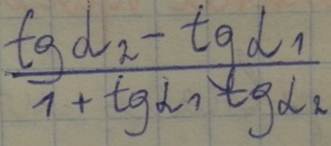 tg α₂ - tg α₁
1 + tg α₁ tg α₂